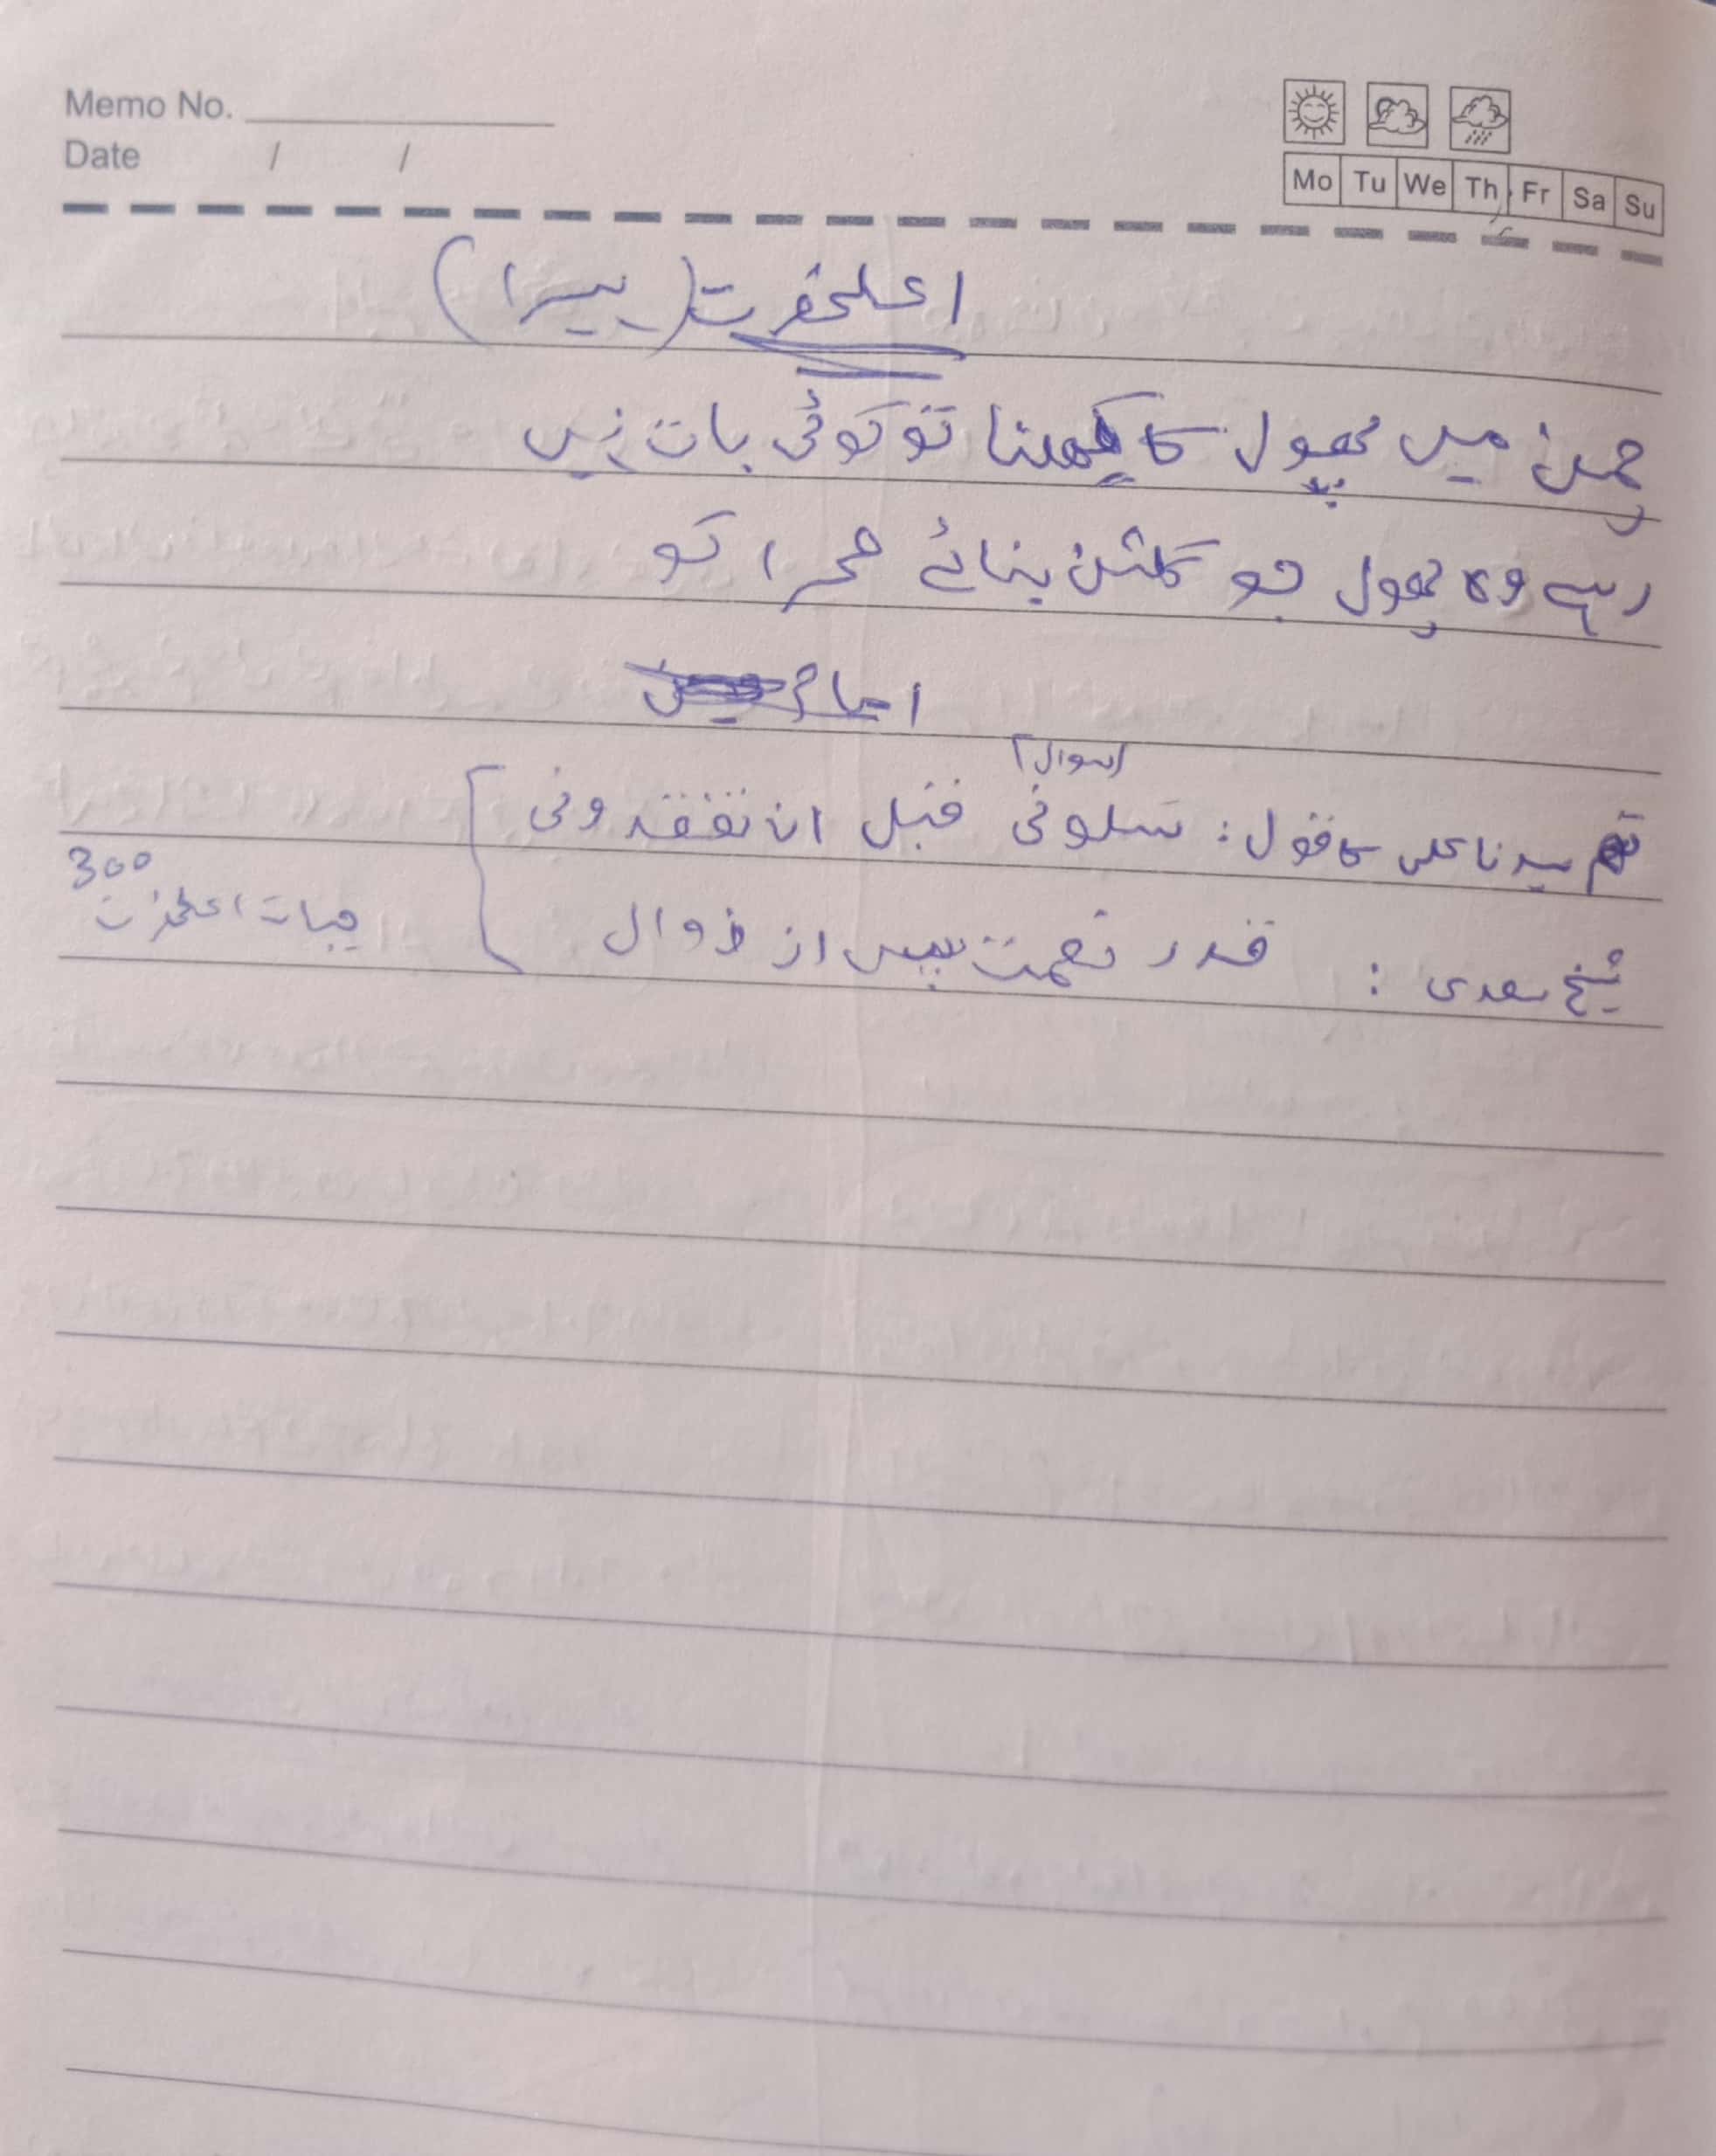 Memo No.
Date / /
Mo Tu We Th Fr Sa Su
اعلحضرت (پیرا)
چمن میں پھول کا کھلنا تو کوئی بات نہیں
رہے وہ پھول جو گلشن بنائے صحرا کو
(سوال)
سیدنا علی کا قول : سلونی قبل ان تفقدونی
300
شیخ سعدی : قدر نعمت پس از زوال
حیات اعلحضرت